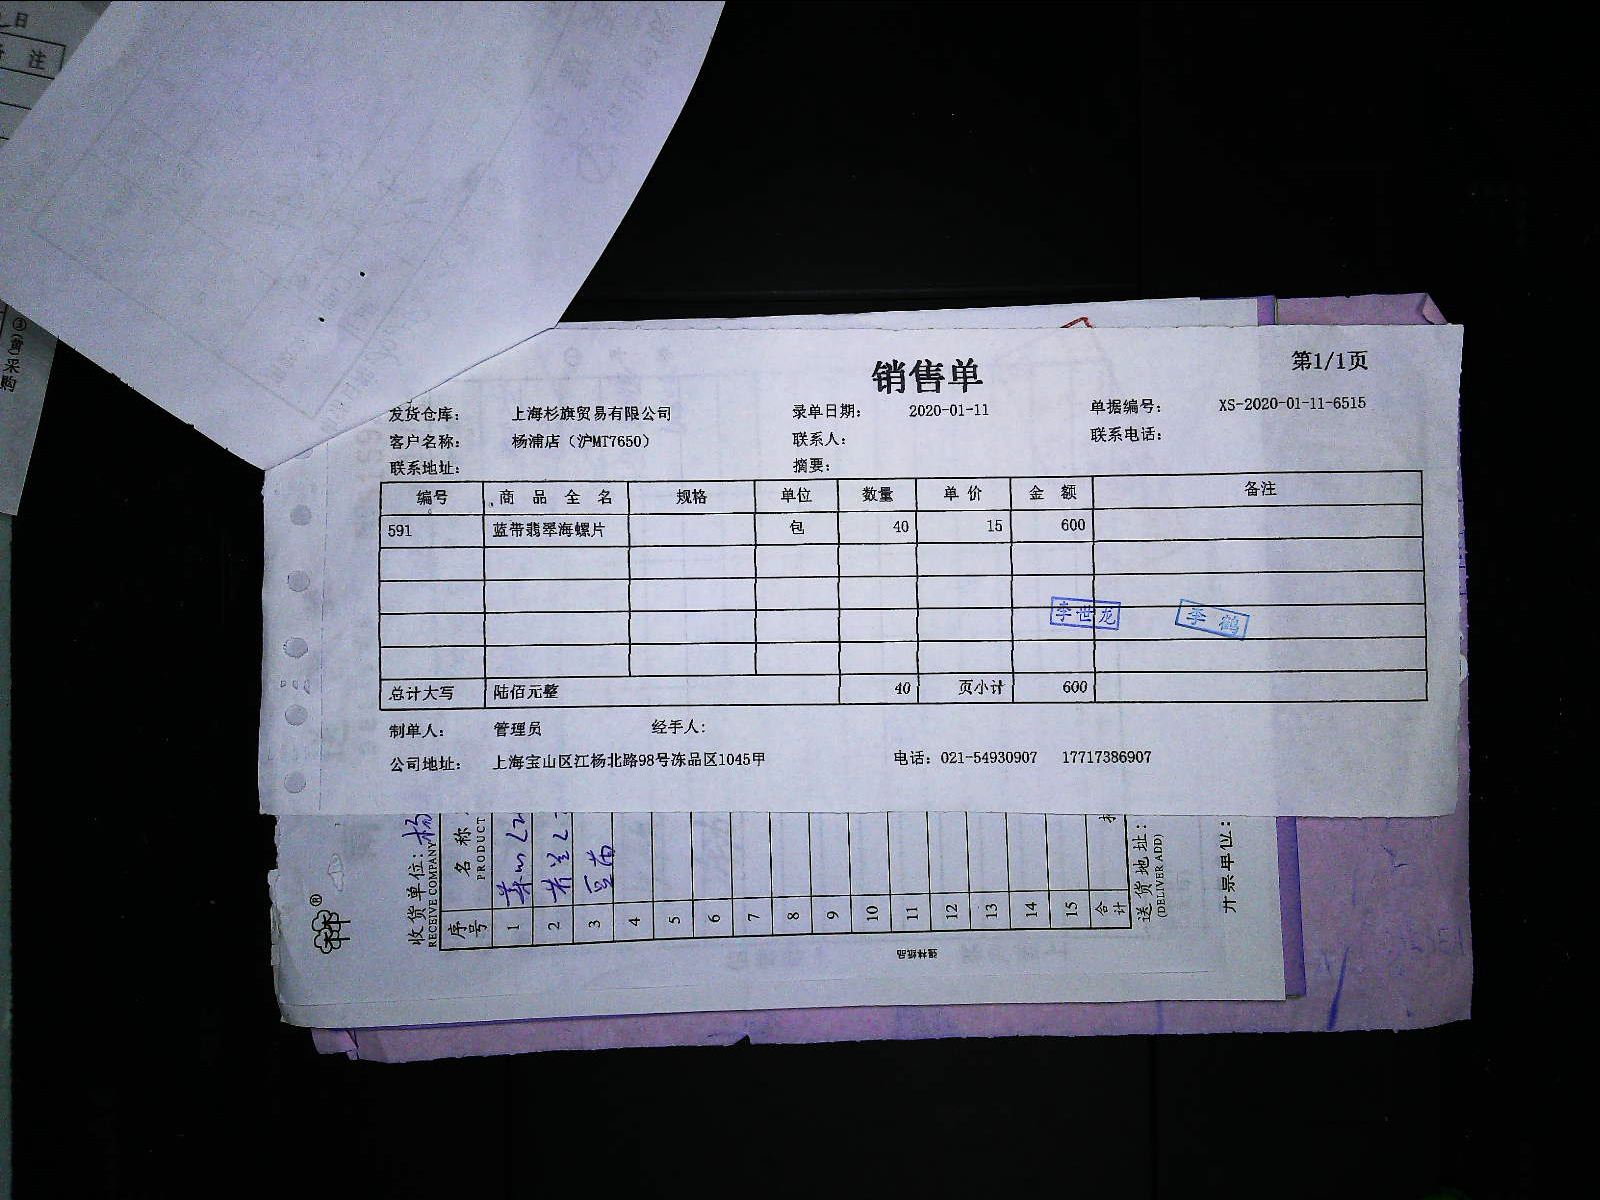 日
注
③(黄)采购
销售单
第1/1页
发货仓库： 上海杉旗贸易有限公司 录单日期： 2020-01-11 单据编号： XS-2020-01-11-6515
客户名称： 杨浦店（沪MT7650） 联系人： 联系电话：
联系地址： 摘要：
编号 商品全名 规格 单位 数量 单价 金额 备注
591 蓝带翡翠海螺片 包 40 15 600
李世龙 李鹤
总计大写 陆佰元整 40 页小计 600
制单人： 管理员 经手人：
公司地址： 上海宝山区江杨北路98号冻品区1045甲 电话：021-54930907 17717386907
收货单位：杨
RECEIVE COMPANY
序号 名称
PRODUCT
1
2
3 豆苗
4
5
6
7
8
9
10
11
12
13
14
15
合计
送货地址：
(DELIVER ADD)
开票单位：
强林纸品